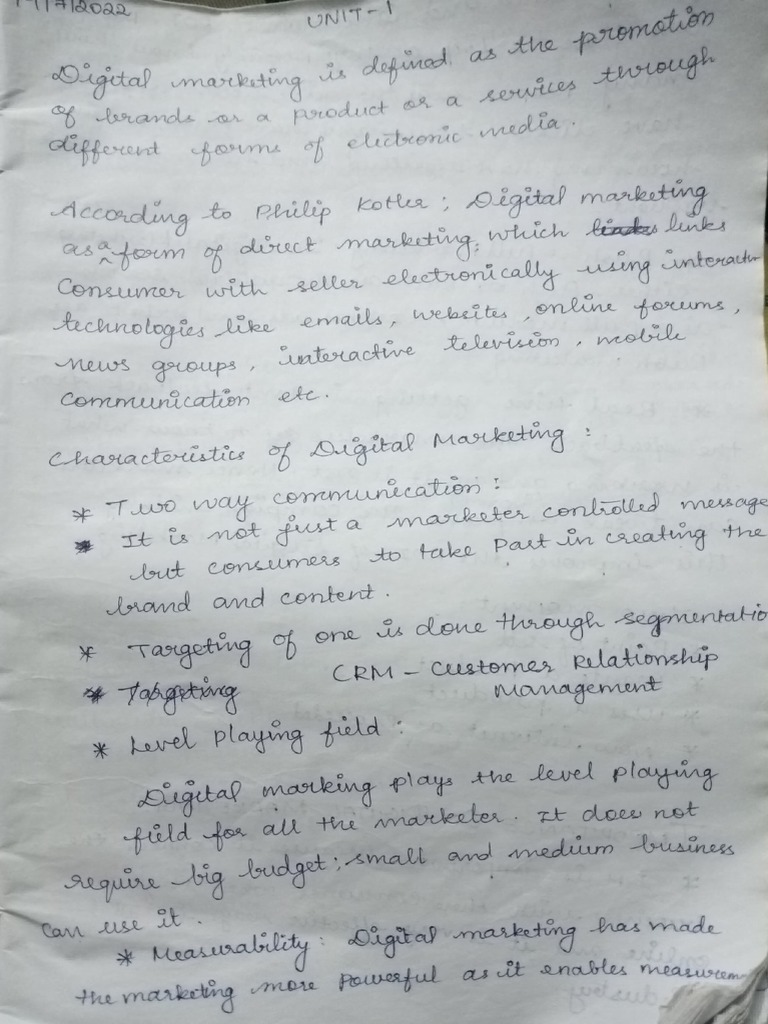 /7/2022
UNIT-1
Digital marketing is defined as the promotion
of brands or a product or a services through
different forms of electronic media.
According to Philip Kotler; Digital marketing
as a form of direct marketing, which links
Consumer with seller electronically using interactiv
technologies like emails, websites, online forums,
news groups, interactive television, mobile
communication etc.
Characteristics of Digital Marketing :
* Two way communication :
* It is not just a marketer controlled message
but consumers to take part in creating the
brand and content.
* Targeting of one is done through segmentatio
* Targeting CRM - Customer Relationship
Management
* Level playing field :
Digital marking plays the level playing
field for all the marketer. It does not
require big budget; small and medium business
can use it.
* Measurability: Digital marketing has made
the marketing more powerful as it enables measurem